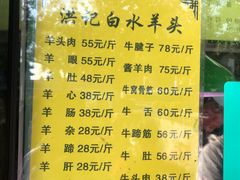 洪记白水羊头
羊头肉 55元/斤 牛腱子 78元/斤
羊眼 55元/斤 酱羊肉 75元/斤
羊肚 48元/斤 牛窝骨筋 80元/斤
羊心 38元/斤 牛舌 60元/斤
羊肠 38元/斤 牛蹄筋 56元/斤
羊杂 28元/斤 牛肚 56元/斤
羊蹄 28元/斤 牛头肉 38元/斤
羊肝 28元/斤